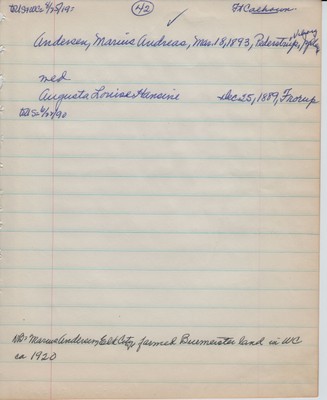 42 Ft Calhoun
Andersen, Marius Andreas, Mar. 18, 1893, Pederstrup,
med
Augusta Louise Hansine Dec 25, 1889, Farup
NB: Marius Andersen, Elk City, farmed Burmeister land in WC
ca 1920